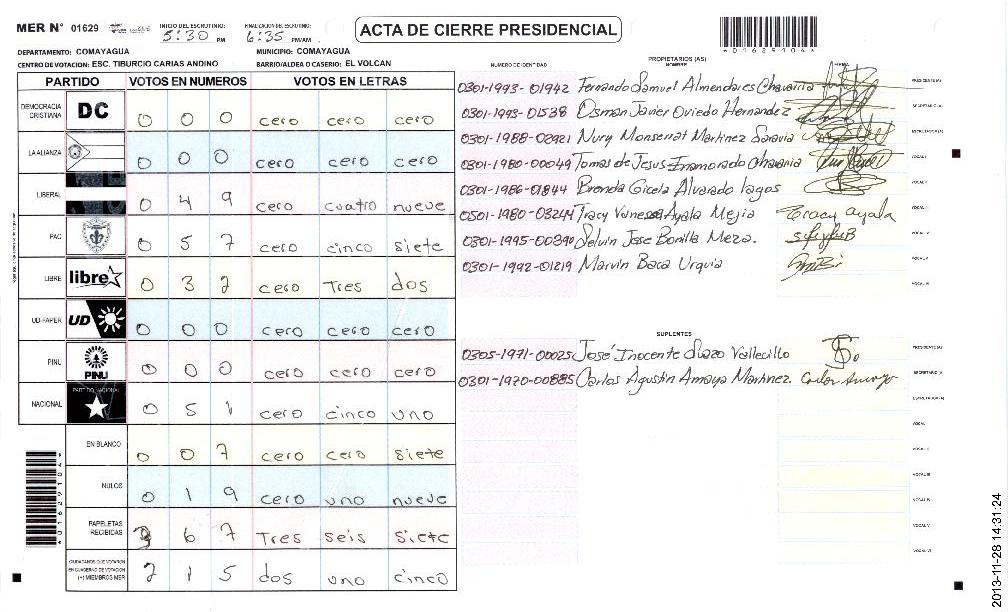 MER N° 01629
INICIO DEL ESCRUTINIO: 5:30 PM
FINALIZACION DEL ESCRUTINIO: 6:35 PM/AM
ACTA DE CIERRE PRESIDENCIAL
DEPARTAMENTO: COMAYAGUA
MUNICIPIO: COMAYAGUA
CENTRO DE VOTACION: ESC. TIBURCIO CARIAS ANDINO
BARRIO/ALDEA O CASERIO: EL VOLCAN
PARTIDO VOTOS EN NUMEROS VOTOS EN LETRAS
DEMOCRACIA CRISTIANA DC 0 0 0 cero cero cero
LA ALIANZA 0 0 0 cero cero cero
LIBERAL 0 4 9 cero cuatro nueve
PAC 0 5 7 cero cinco siete
LIBRE libre 0 3 2 cero Tres dos
UD-FAPER UD 0 0 0 cero cero cero
PINU PINU 0 0 0 cero cero cero
NACIONAL PARTIDO NACIONAL 0 5 1 cero cinco uno
EN BLANCO 0 0 7 cero cero siete
NULOS 0 1 9 cero uno nueve
PAPELETAS RECIBIDAS 3 6 7 Tres seis siete
CIUDADANOS QUE VOTARON EN CUADERNO DE VOTACION (+) MIEMBROS MER 2 1 5 dos uno cinco
*01629104*
*01629104*
PROPIETARIOS (AS)
NUMERO DE IDENTIDAD NOMBRE FIRMA
0301-1993-01942 Fernando Samuel Almendares Chavarria PRESIDENTE(A)
0301-1993-01538 Osman Javier Oviedo Hernandez SECRETARIO(A)
0301-1988-02921 Nury Monserrat Martinez Saravia ESCRUTADOR(A)
0301-1980-00049 Tomas de Jesus Inamorado Chavarria VOCAL I
0301-1986-01844 Brenda Gicela Alvarado lagos VOCAL II
0501-1980-03244 Tracy Vanessa Ayala Mejia Tracy ayala VOCAL III
0301-1995-00390 Selvin Jose Bonilla Meza. VOCAL IV
0301-1992-01219 Marvin Baca Urquia VOCAL V
VOCAL VI
SUPLENTES
0305-1971-00025 José Inocente Suazo Vallecillo PRESIDENTE(A)
0301-1970-00885 Carlos Agustin Amaya Martinez. Carlos Amaya SECRETARIO(A)
ESCRUTADOR(A)
VOCAL I
VOCAL II
VOCAL III
VOCAL IV
VOCAL V
VOCAL VI
2013-11-28 14:31:24